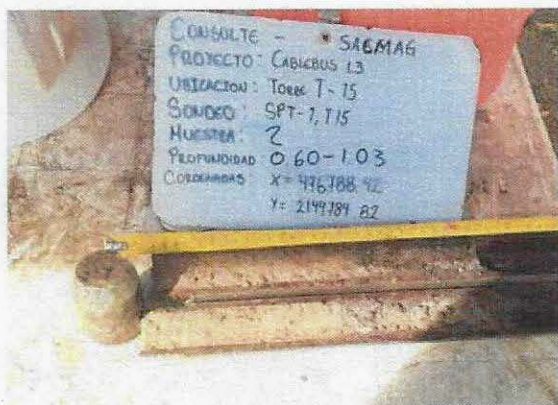 CONSULTE - SACMAG
PROYECTO: CABLEBUS L3
UBICACION: TORRE T-15
SONDEO: SPT-1, T15
MUESTRA: 2
PROFUNDIDAD 0.60-1.03
CORDENADAS X=476788.92
Y=2149789.82